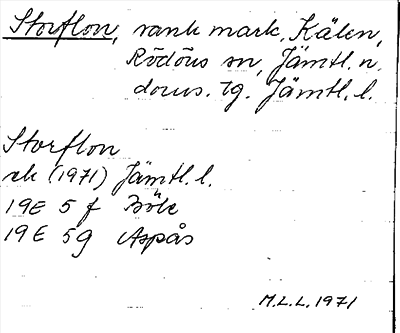 Storflon, sank mark, Kälen,
Rödöns sn, Jämtl. n.
doms. tg. Jämtl. l.
Storflon
ek (1971) Jämtl. l.
19E 5 f Böle
19E 5g Aspås
M.L.L. 1971